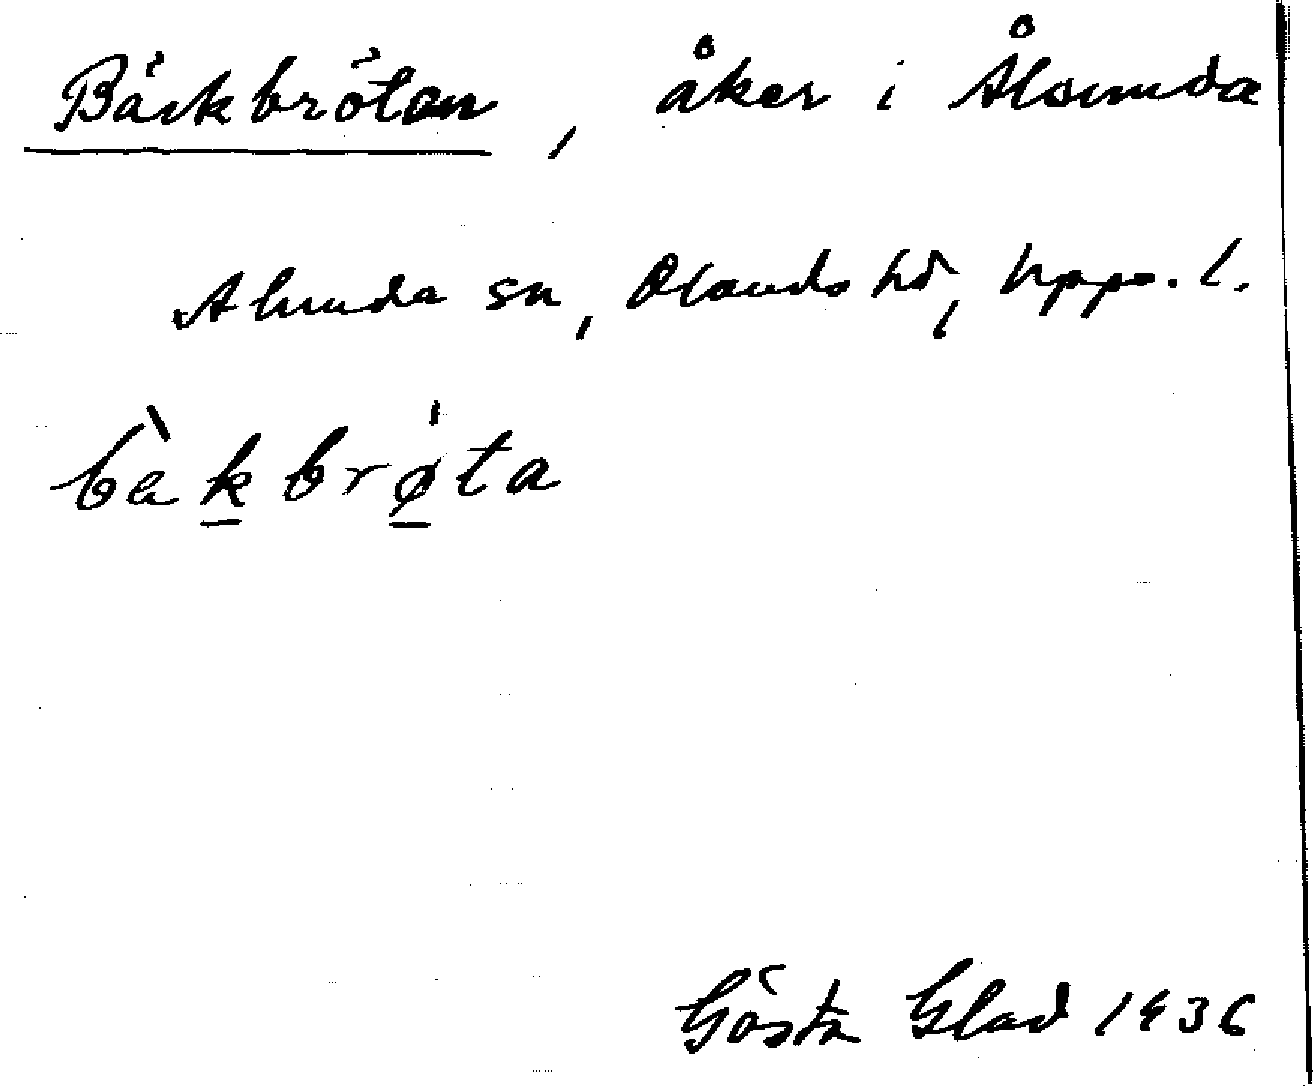 Bäckbrötan, åker i Ålsunda
Alunda sn, Olands hd, Upps. l.
bä̀kbrø̍ta
Gösta Glad 1936